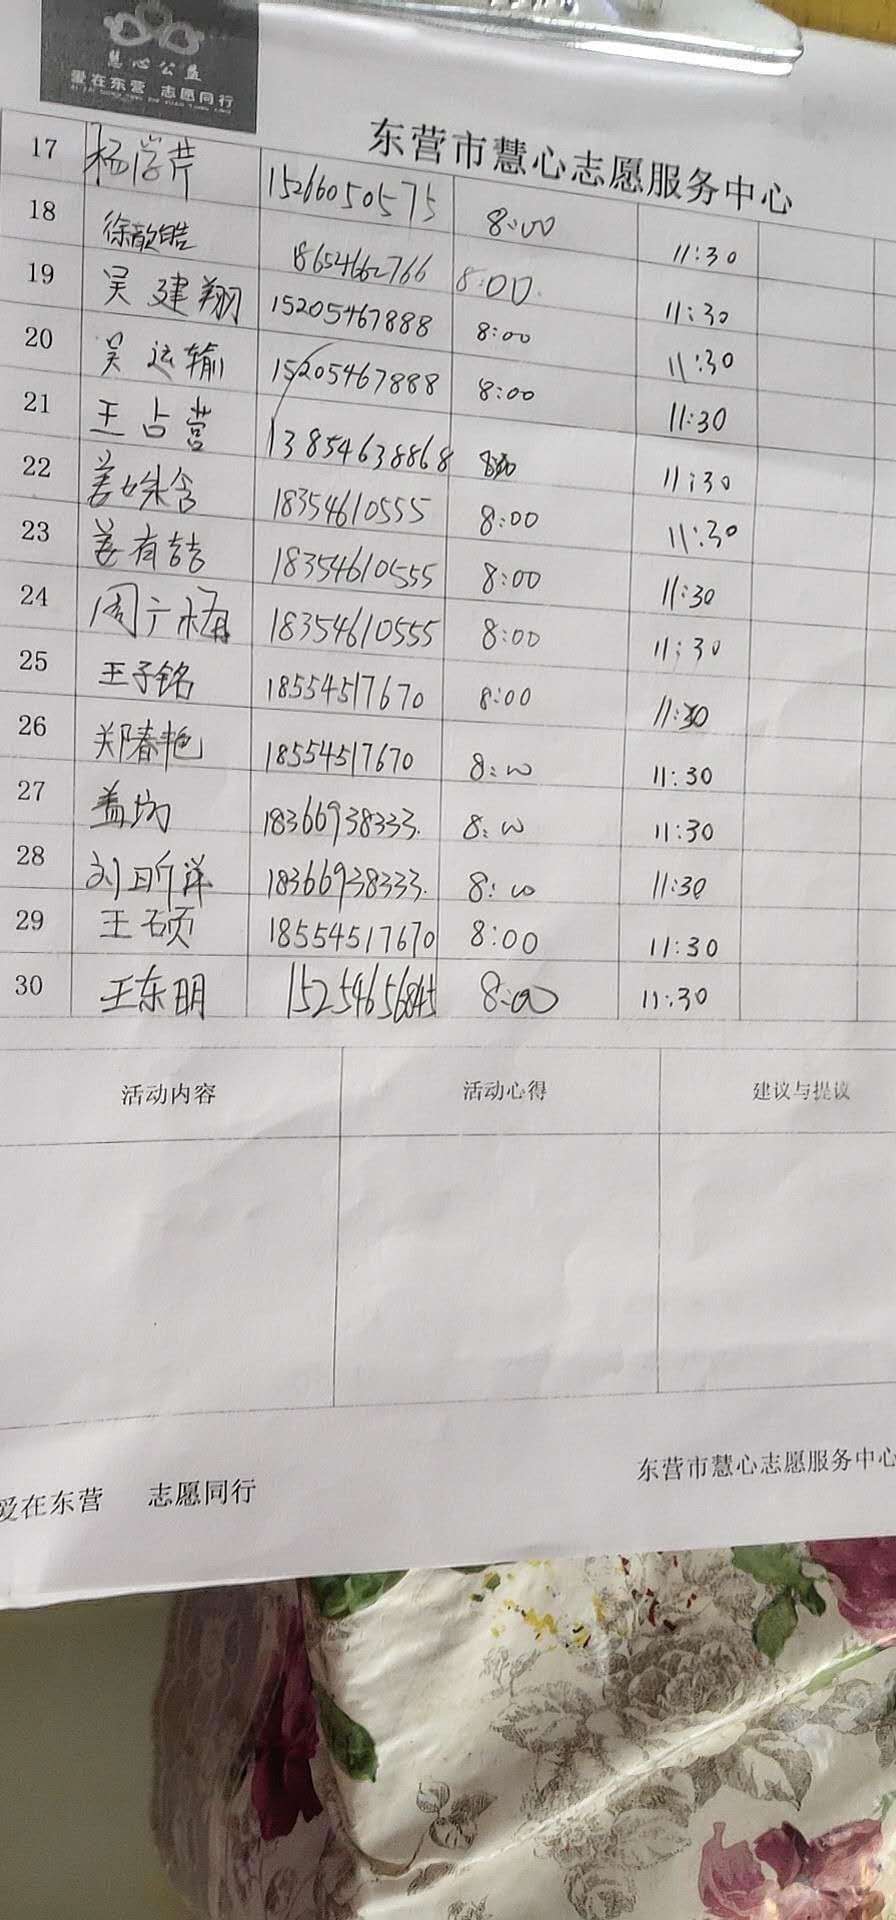 慧心公益
爱在东营 志愿同行
东营市慧心志愿服务中心
17 杨学芹 15266050575 8:00 11:30
18 徐歆皓 18654662766 8:00 11:30
19 吴建翔 15205467888 8:00 11:30
20 吴运输 15205467888 8:00 11:30
21 王占营 13854638868 11:30
22 姜姝含 18354610555 8:00 11:30
23 姜有喆 18354610555 8:00 11:30
24 18354610555 8:00 11:30
25 王子铭 18554517670 8:00 11:30
26 郑春艳 18554517670 8:00 11:30
27 盖均 18366938333. 8:00 11:30
28 刘昕洋 18366938333. 8:00 11:30
29 王硕 18554517670 8:00 11:30
30 王东明 15254656845 8:00 11:30
活动内容 活动心得 建议与提议
爱在东营 志愿同行 东营市慧心志愿服务中心